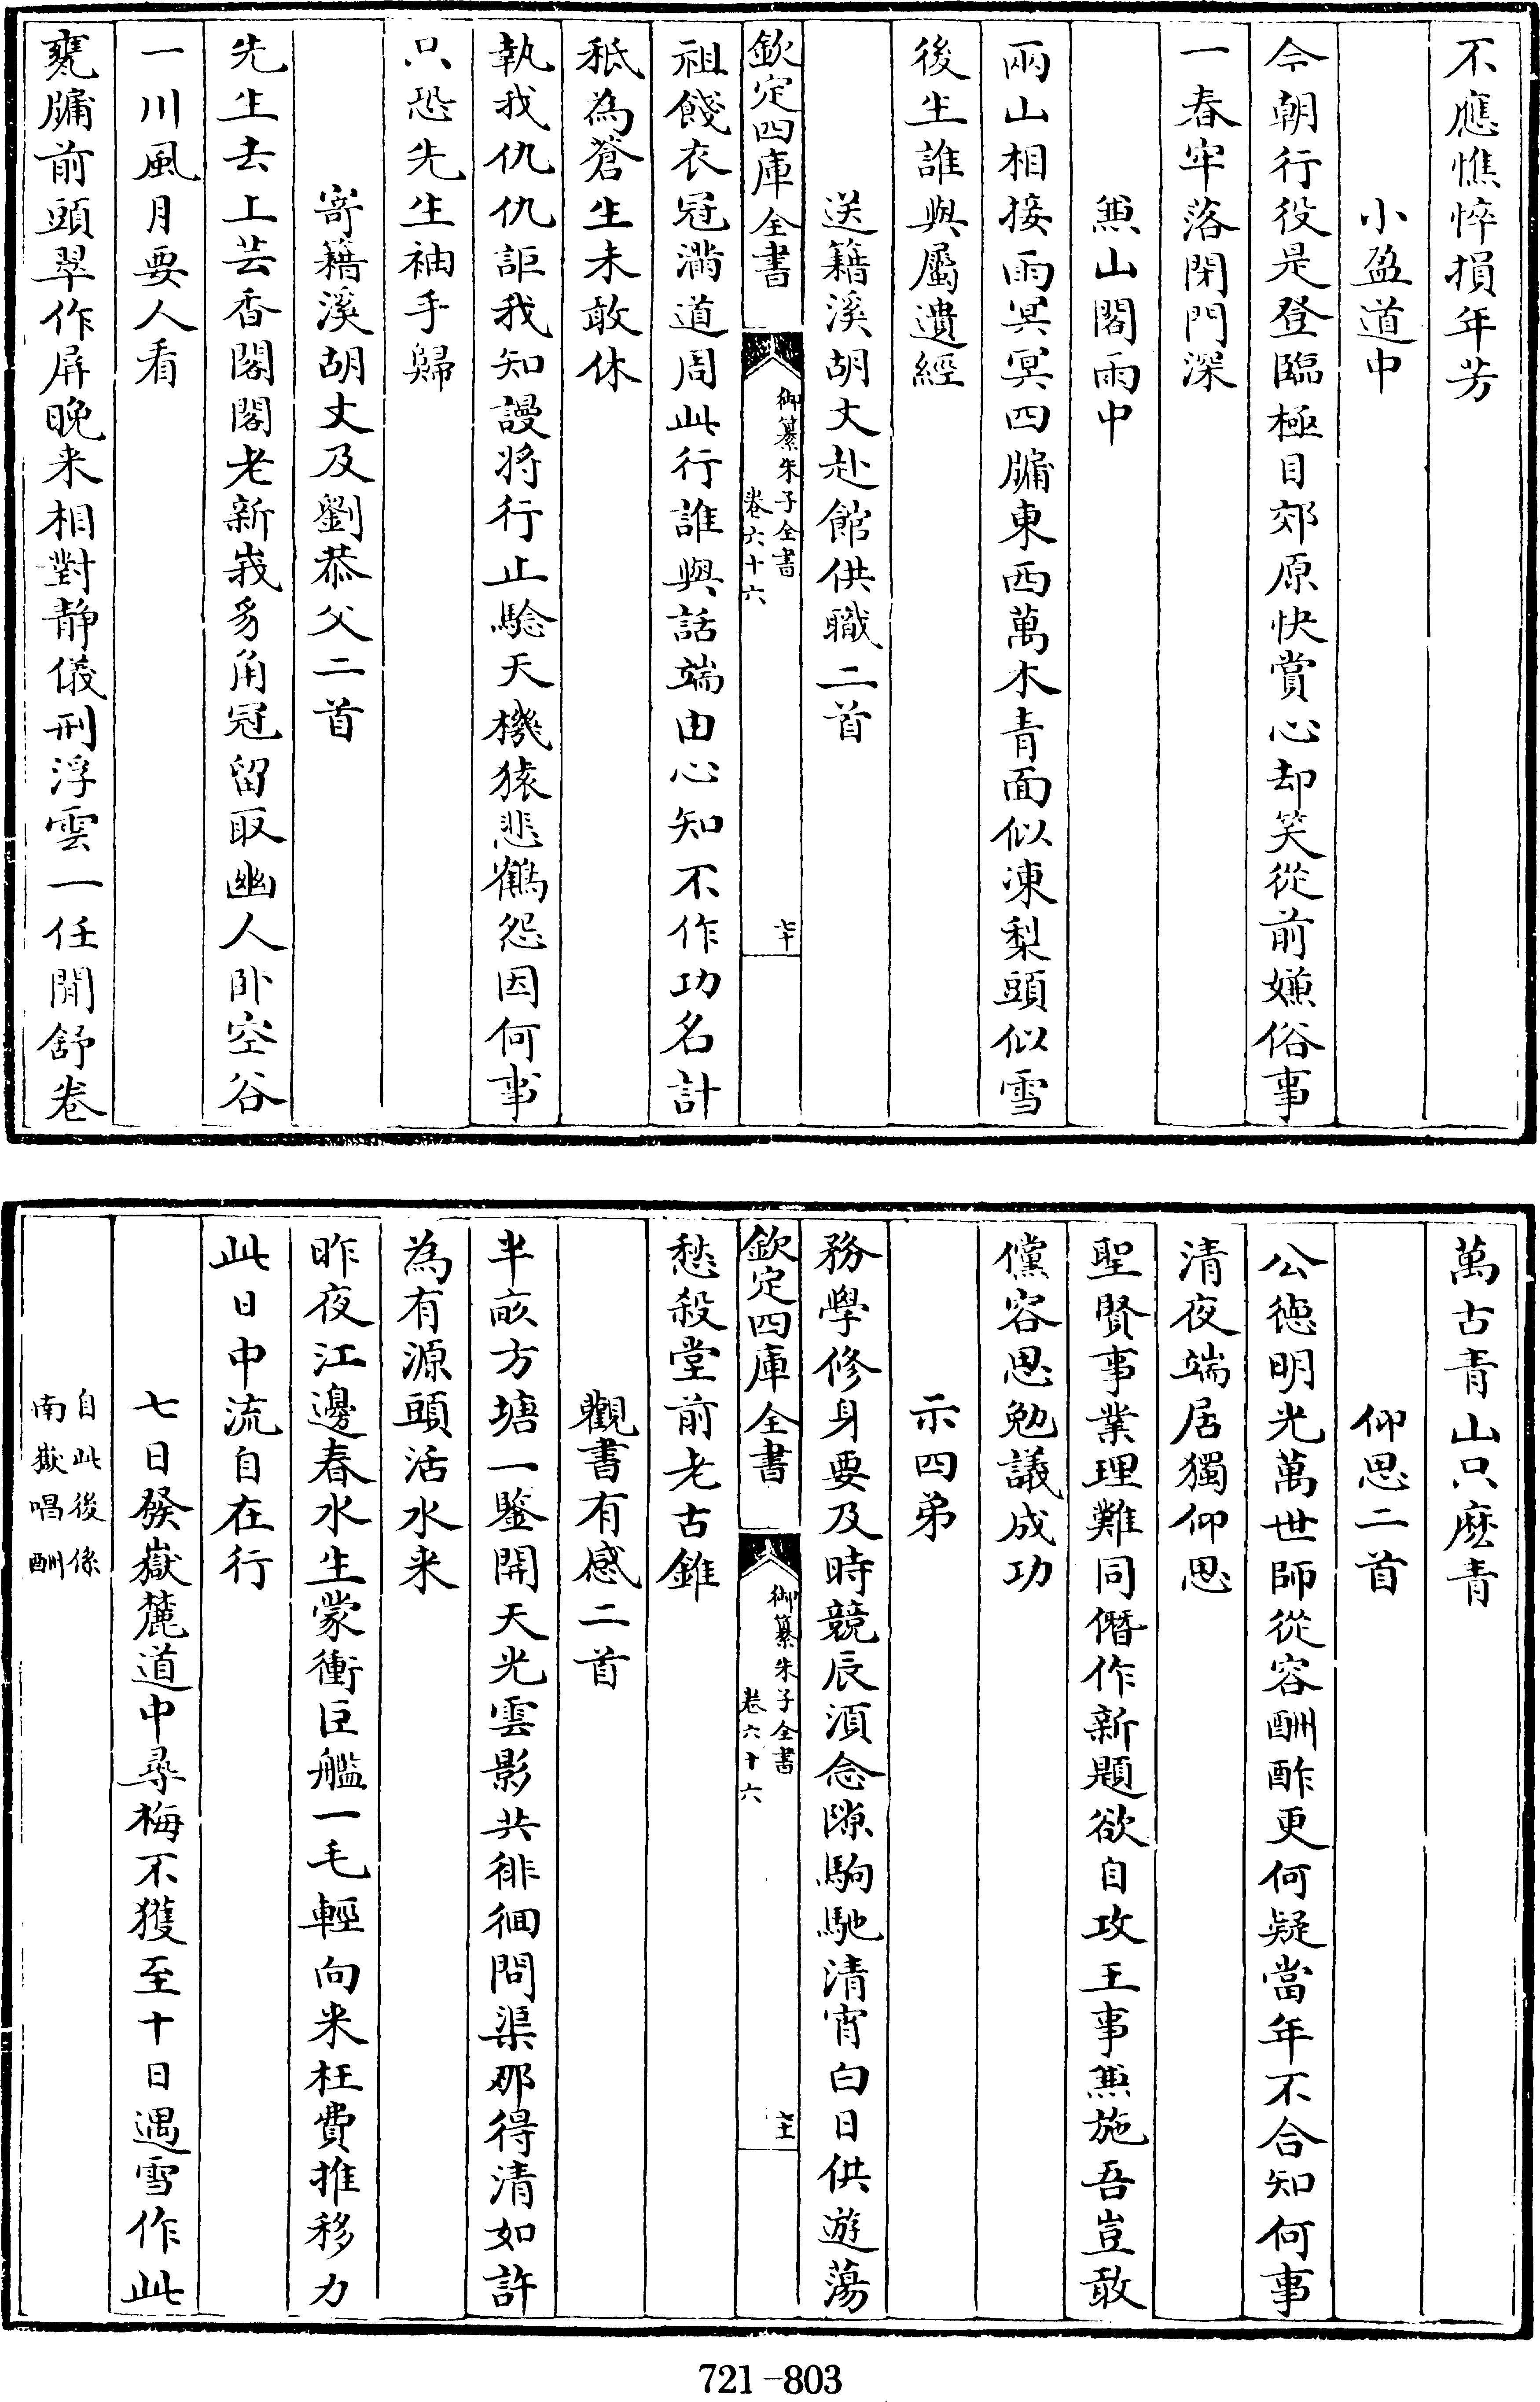 不應憔悴損年芳
小盈道中
今朝行役是登臨極目郊原快賞心却笑從前嫌俗事
一春牢落閉門深
熊山閣雨中
兩山相接雨冥冥四牖東西萬木青面似凍梨頭似雪
後生誰與屬遺經
送籍溪胡丈赴館供職二首
欽定四庫全書
御纂朱子全書
卷六十六
七十
祖餞衣冠滿道周此行誰與話端由心知不作功名計
秪為蒼生未敢休
執我仇仇詎我知謾將行止驗天機猿悲鶴怨因何事
只恐先生袖手歸
寄籍溪胡丈及劉恭父二首
先生去上芸香閣閣老新峩豸角冠留取幽人卧空谷
一川風月要人看
甕牖前頭翠作屏晚来相對静儀刑浮雲一任閒舒卷
萬古青山只麽青
仰思二首
公徳明光萬世師從容酬酢更何疑當年不合知何事
清夜端居獨仰思
聖賢事業理難同僭作新題欲自攻王事兼施吾豈敢
儻容思勉議成功
示四弟
務學修身要及時競辰湏念隙駒馳清宵白日供遊蕩
欽定四庫全書
御纂朱子全書
卷六十六
七十一
愁殺堂前老古錐
觀書有感二首
半畝方塘一鑒開天光雲影共徘徊問渠那得清如許
為有源頭活水来
昨夜江邊春水生蒙衝巨艦一毛輕向来枉費推移力
此日中流自在行
七日發嶽麓道中尋梅不獲至十日遇雪作此
自此後係
南嶽唱酬
721-803